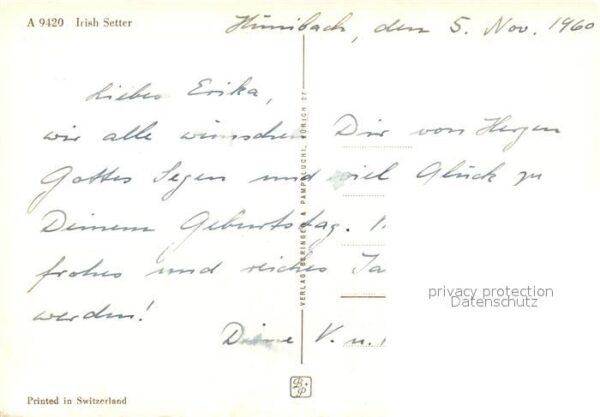 A 9420 Irish Setter
Hünibach, den 5. Nov. 1960
Liebe Erika,
wir alle wünschen Dir von Herzen
Gottes Segen und viel Glück zu
Deinem Geburtstag.
frohes und reiches
werden!
Deine V. u.
VERLAG BERINGER & PAMPALUCHI, ZÜRICH 27
privacy protection
Datenschutz
B+P
Printed in Switzerland